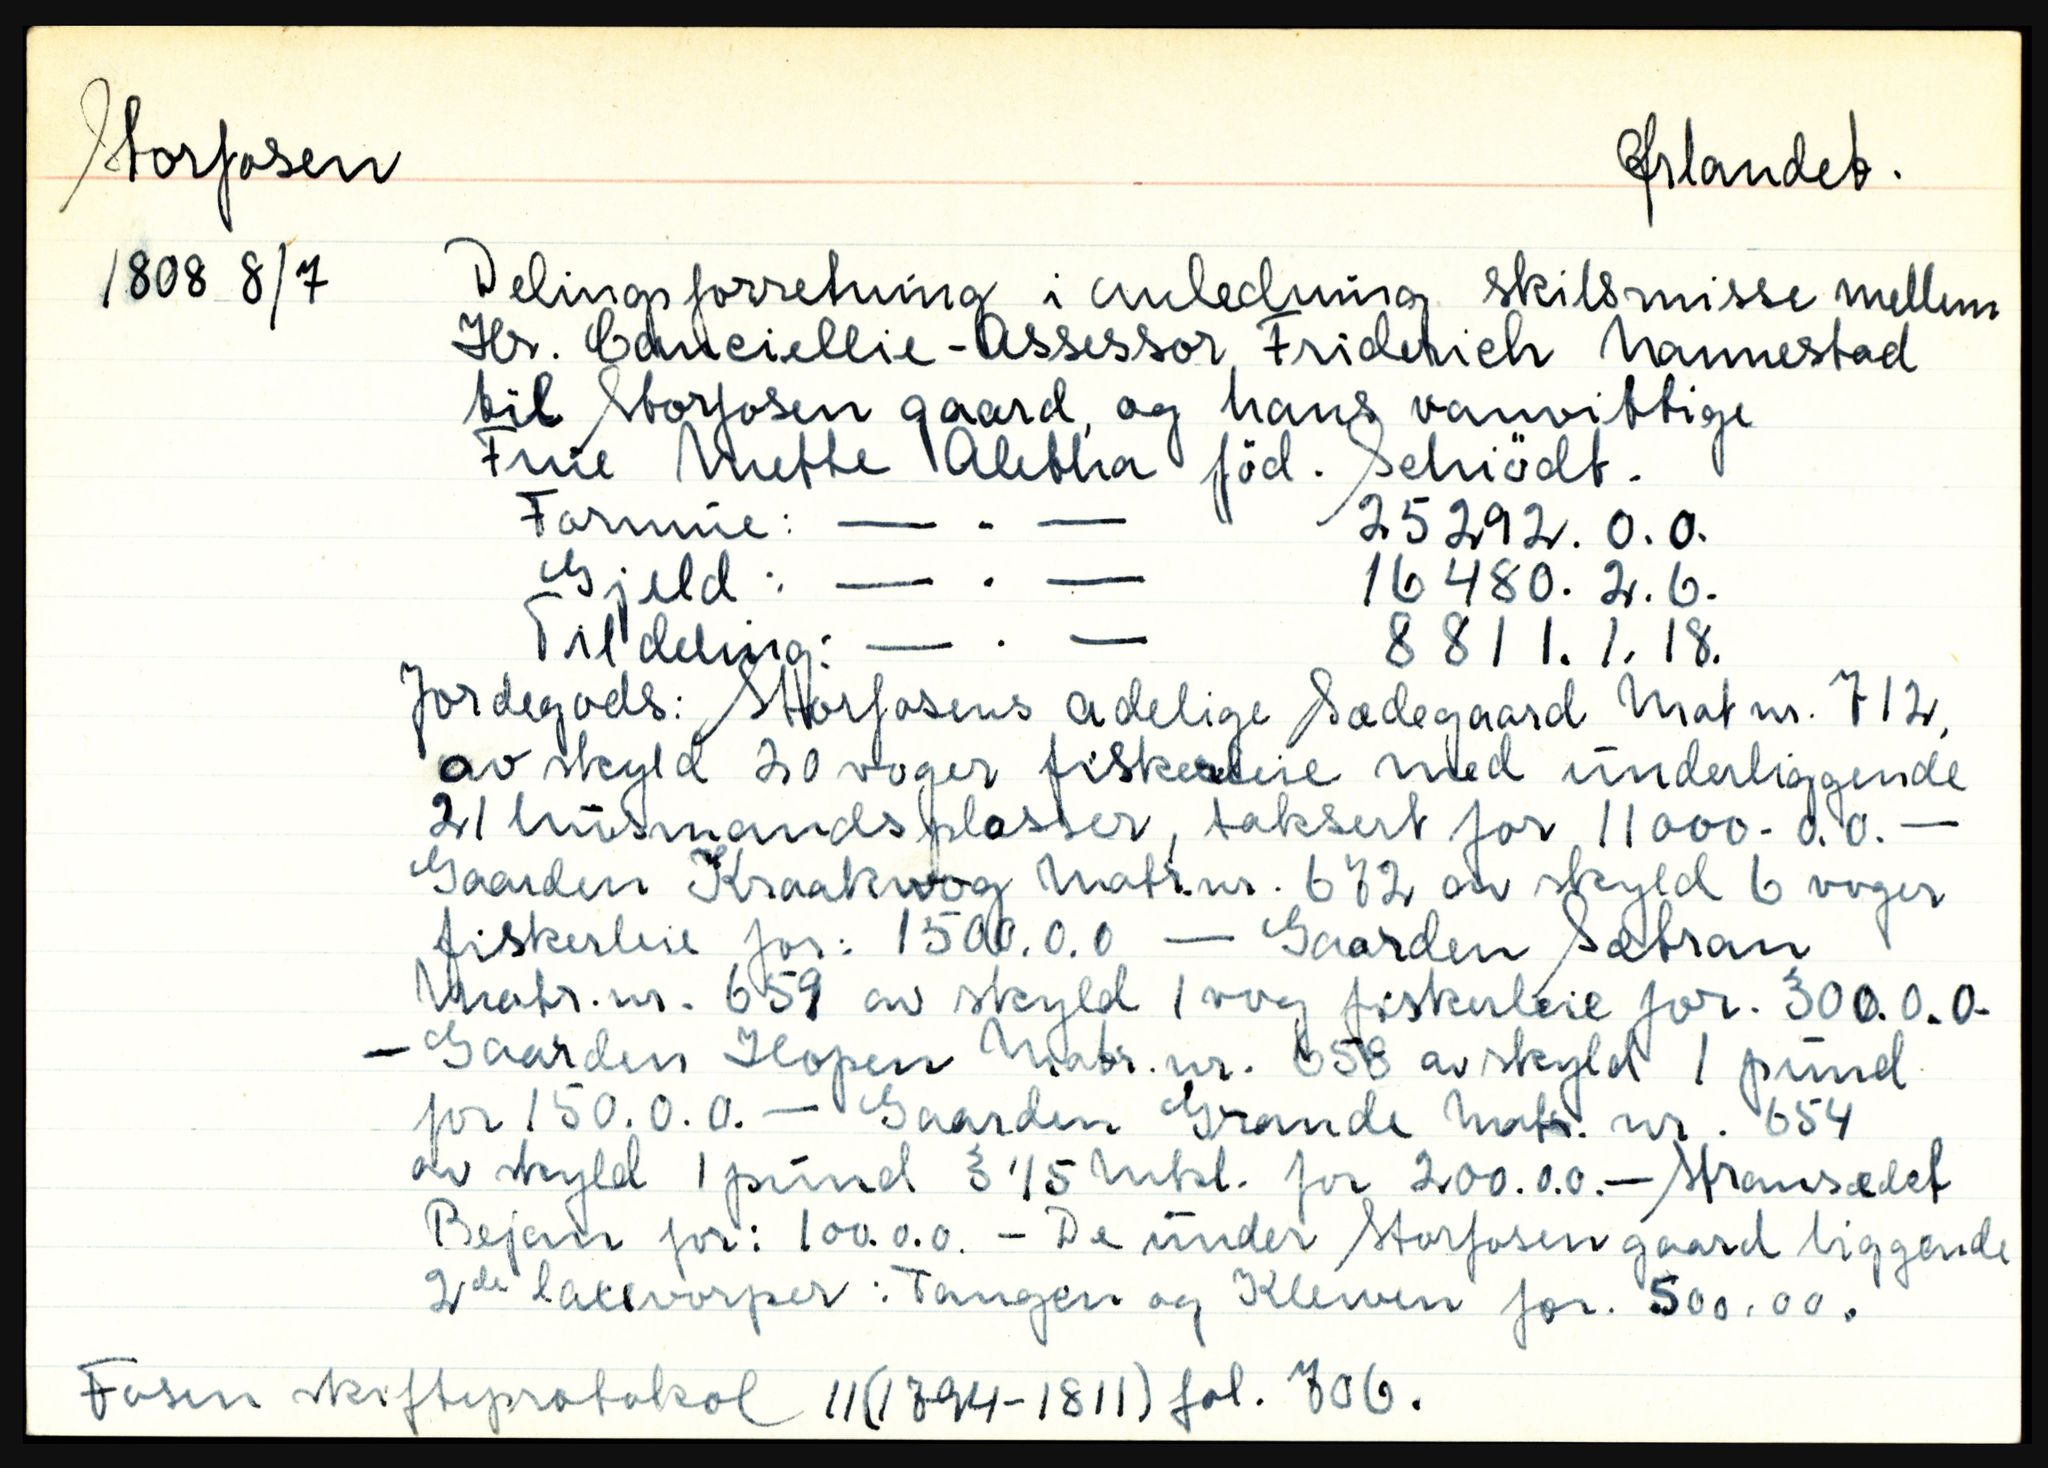 Storfosen Ørlandet.
1808 8/7 Delingsforretning i anledning skilsmisse mellem
Hr. Canciellie-Assessor Friderich Nannestad
til Storfosen gaard, og hans vanvittige
Frue Mette Aletha föd. Schiödt.
Formue: — . — 25292. 0. 0.
Gjeld: — . — 16480. 2. 6.
Til deling: — . — 8811. 1. 18.
Jordegods: Storfosens adelige Sædegaard Matnr. 712,
av skyld 20 voger fiskerleie med underliggende
21 husmandsplasser, taksert for 11000. 0. 0. —
Gaarden Kraakvog Matr.nr. 672 av skyld 6 voger
fiskerleie for: 1500. 0. 0 — Gaarden Sætran
Matr.nr. 659 av skyld 1 vog fiskerleie for. 300. 0. 0.
— Gaarden Hopen Matr.nr. 658 av skyld 1 pund
for 150. 0. 0. — Gaarden Grande Matr. nr. 654
av skyld 1 pund 3 1/5 Mkl. for 200. 0. 0. — Stransædet
Bejan for: 100. 0. 0. — De under Storfosen gaard liggende
2de laxevorper: Tangen og Kleiven for. 500. 00.
Fosen skifteprotokol 11 (1794-1811) fol. 706.